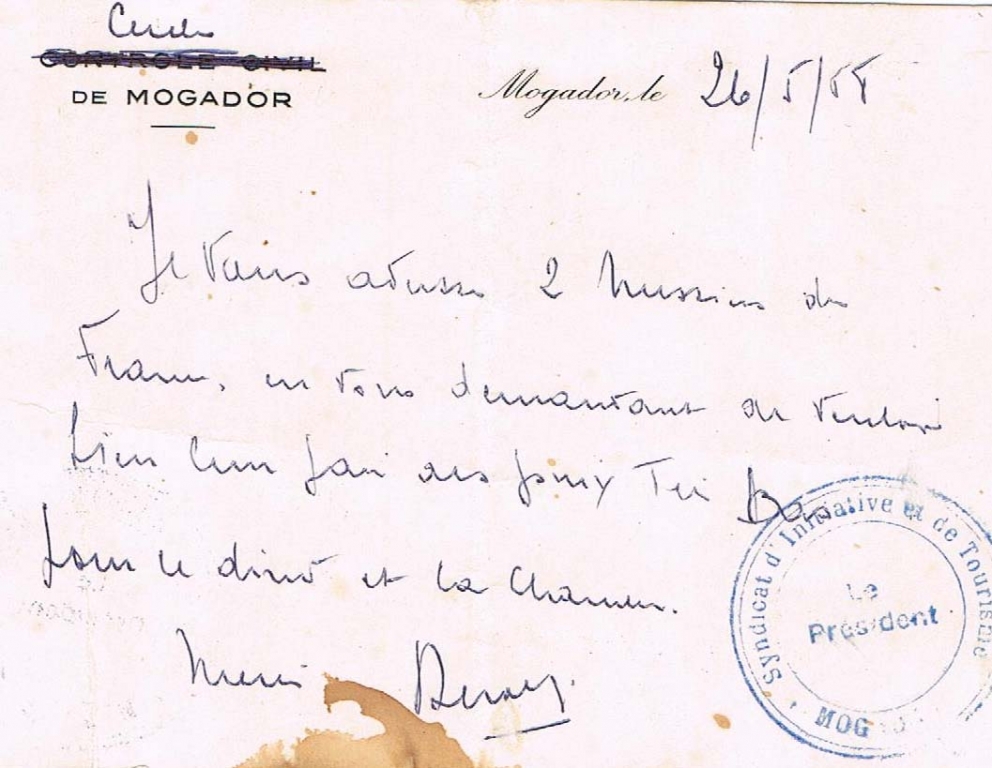 Cercle
CONTROLE CIVIL
DE MOGADOR
Mogador, le 26/5/58
Je vous adresse 2 Messieurs de
France, en vous demandant de vouloir
bien leur fair des prix Très Bas
pour le diner et la Chambre.
Merci
Syndicat d'Initiative et de Tourisme
Le
Président
MOG